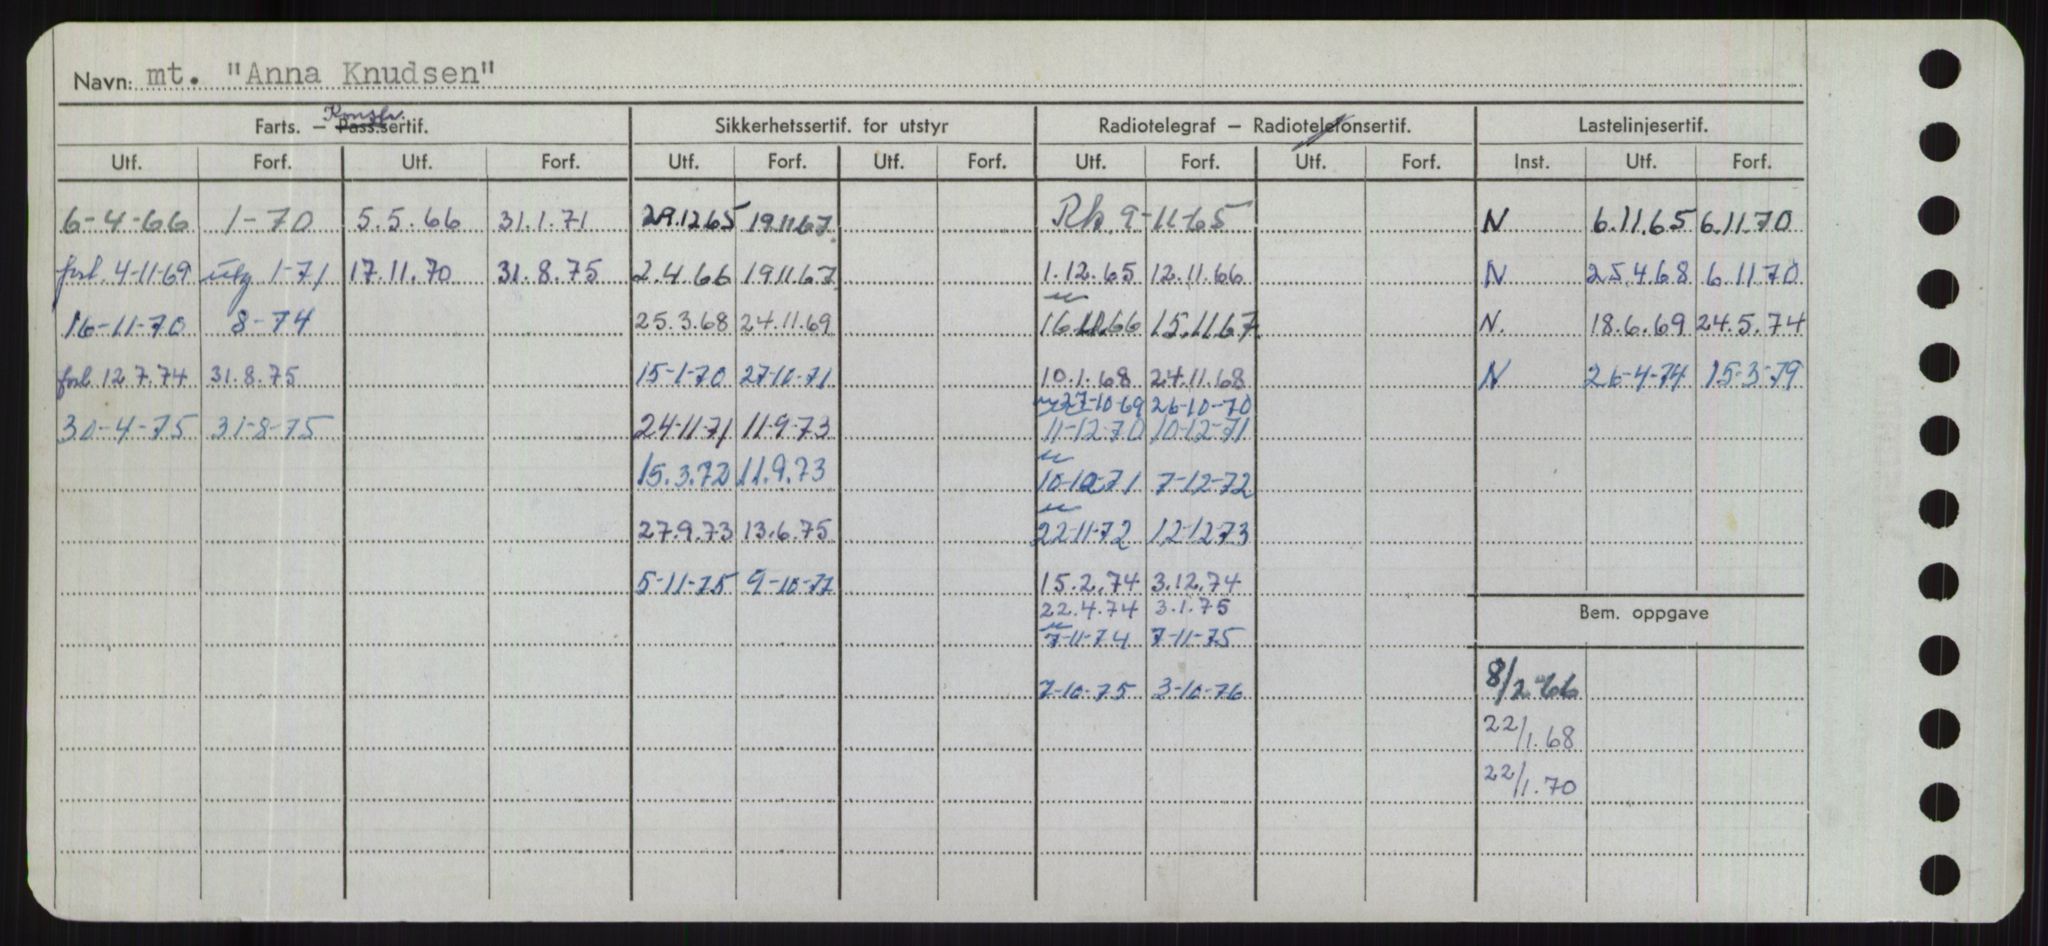 Navn: mt. "Anna Knudsen"
Konstr.
Farts. – Pass.sertif. Sikkerhetssertif. for utstyr Radiotelegraf – Radiotelefonsertif. Lastelinjesertif.
Utf. Forf. Utf. Forf. Utf. Forf. Utf. Forf. Utf. Forf. Utf. Forf. Inst. Utf. Forf.
6-4-66 1-70 5.5.66 31.1.71 29.12.65 19.11.67. Rh. 9-11-65 N 6.11.65 6.11.70
forl. 4-11-69 utg 1-71 17.11.70 31.8.75 2.4.66 19.11.67 1.12.65 12.11.66 N 25.4.68 6.11.70
16-11-70 8-74 25.3.68 24.11.69 16.11.66 15.11.67. N. 18.6.69 24.5.74
forl 12.7.74 31.8.75 15-1-70 27-10-71 10.1.68 24.11.68 N 26-4-74 15-3-79
27-10-69 26-10-70
30-4-75 31-8-75 24-11-71 11-9-73 11-12-70 10-12-71
15.3.72 11.9.73 71 7-12-72
27.9.73 13.6.75 22-11-72 12-12-73
5-11-75 9-10-77 15.2.74 3.12.74
22.4.74 3.1.75
Bem. oppgave
7-11-74 7-11-75
7-10-75 3-10-76 8/2-66
22/1.68
22/1.70